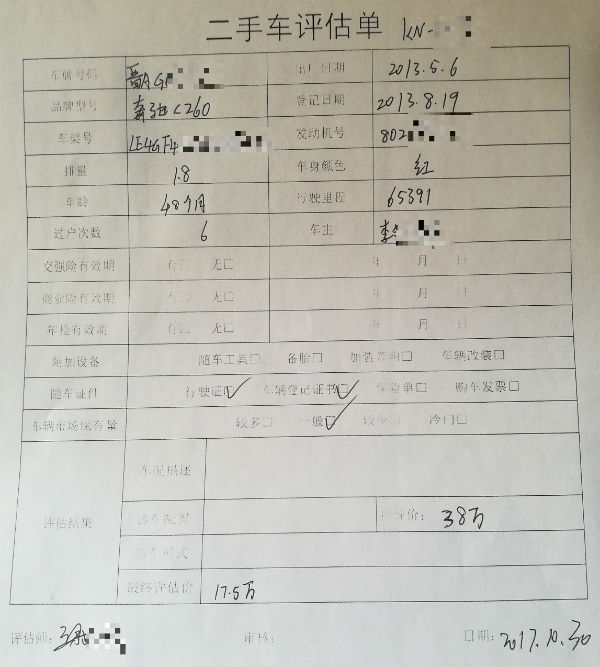 二手车评估单 KN-
车牌号码 晋AG 出厂日期 2013.5.6
品牌型号 奔驰C260 登记日期 2013.8.19
车架号 LE4GF4 发动机号 802
排量 1.8 车身颜色 红
车龄 48个月 行驶里程 65391
过户次数 6 车主 李
交强险有效期 有□ 无□ 年 月 日
商业险有效期 有□ 无□ 年 月 日
年检有效期 有□ 无□ 年 月 日
附加设备 随车工具□ 备胎□ 加装音响□ 车辆改装□
随车证件 行驶证☑ 车辆登记证书☑ 保险单□ 购车发票□
车辆市场保有量 较多□ 一般☑ 较少□ 冷门□
评估结果 车况描述
指导价： 38万
最终评估价 17.5万
评估师： 审核： 日期： 2017.10.30